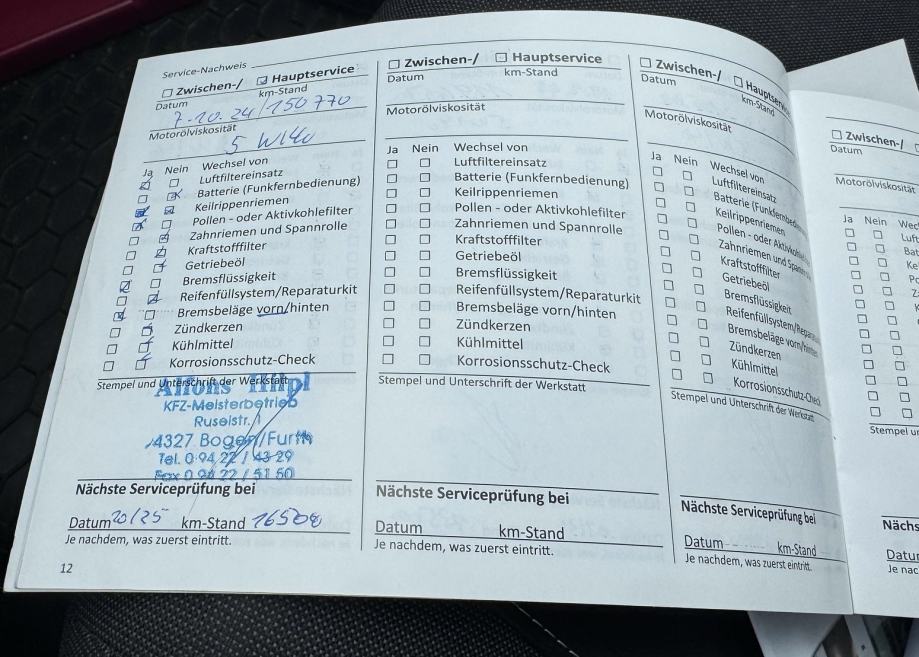 Service-Nachweis
☐ Zwischen-/ ☑ Hauptservice
Datum km-Stand
7.10.24 / 150 770
Motorölviskosität
5 W40
Ja Nein Wechsel von
Luftfiltereinsatz
Batterie (Funkfernbedienung)
Keilrippenriemen
Pollen - oder Aktivkohlefilter
Zahnriemen und Spannrolle
Kraftstofffilter
Getriebeöl
Bremsflüssigkeit
Reifenfüllsystem/Reparaturkit
Bremsbeläge vorn/hinten
Zündkerzen
Kühlmittel
Korrosionsschutz-Check
Stempel und Unterschrift der Werkstatt
Alfons Hilpl
KFZ-Meisterbetrieb
Ruselstr. 1
94327 Bogen/Furth
Tel. 0 94 22 / 43 29
Fax 0 94 22 / 51 50
Nächste Serviceprüfung bei
Datum 10/25 km-Stand
Je nachdem, was zuerst eintritt.
12
☐ Zwischen-/ ☐ Hauptservice
Datum km-Stand
Motorölviskosität
Ja Nein Wechsel von
Luftfiltereinsatz
Batterie (Funkfernbedienung)
Keilrippenriemen
Pollen - oder Aktivkohlefilter
Zahnriemen und Spannrolle
Kraftstofffilter
Getriebeöl
Bremsflüssigkeit
Reifenfüllsystem/Reparaturkit
Bremsbeläge vorn/hinten
Zündkerzen
Kühlmittel
Korrosionsschutz-Check
Stempel und Unterschrift der Werkstatt
Nächste Serviceprüfung bei
Datum km-Stand
Je nachdem, was zuerst eintritt.
☐ Zwischen-/ ☐ Hauptservice
Datum km-Stand
Motorölviskosität
Ja Nein Wechsel von
Luftfiltereinsatz
Batterie (Funkfernbed
Keilrippenriemen
Pollen - oder Aktivkohlefilter
Zahnriemen und Spannrolle
Kraftstofffilter
Getriebeöl
Bremsflüssigkeit
Reifenfüllsystem/Repara
Bremsbeläge vorn/hinten
Zündkerzen
Kühlmittel
Korrosionsschutz-Check
Stempel und Unterschrift der Werkstatt
Nächste Serviceprüfung bei
Datum km-Stand
Je nachdem, was zuerst eintritt.
☐ Zwischen-/
Datum
Motorölviskosität
Ja Nein Wec
Luft
Bat
Ke
Po
Stempel ur
Nächs
Datur
Je nac